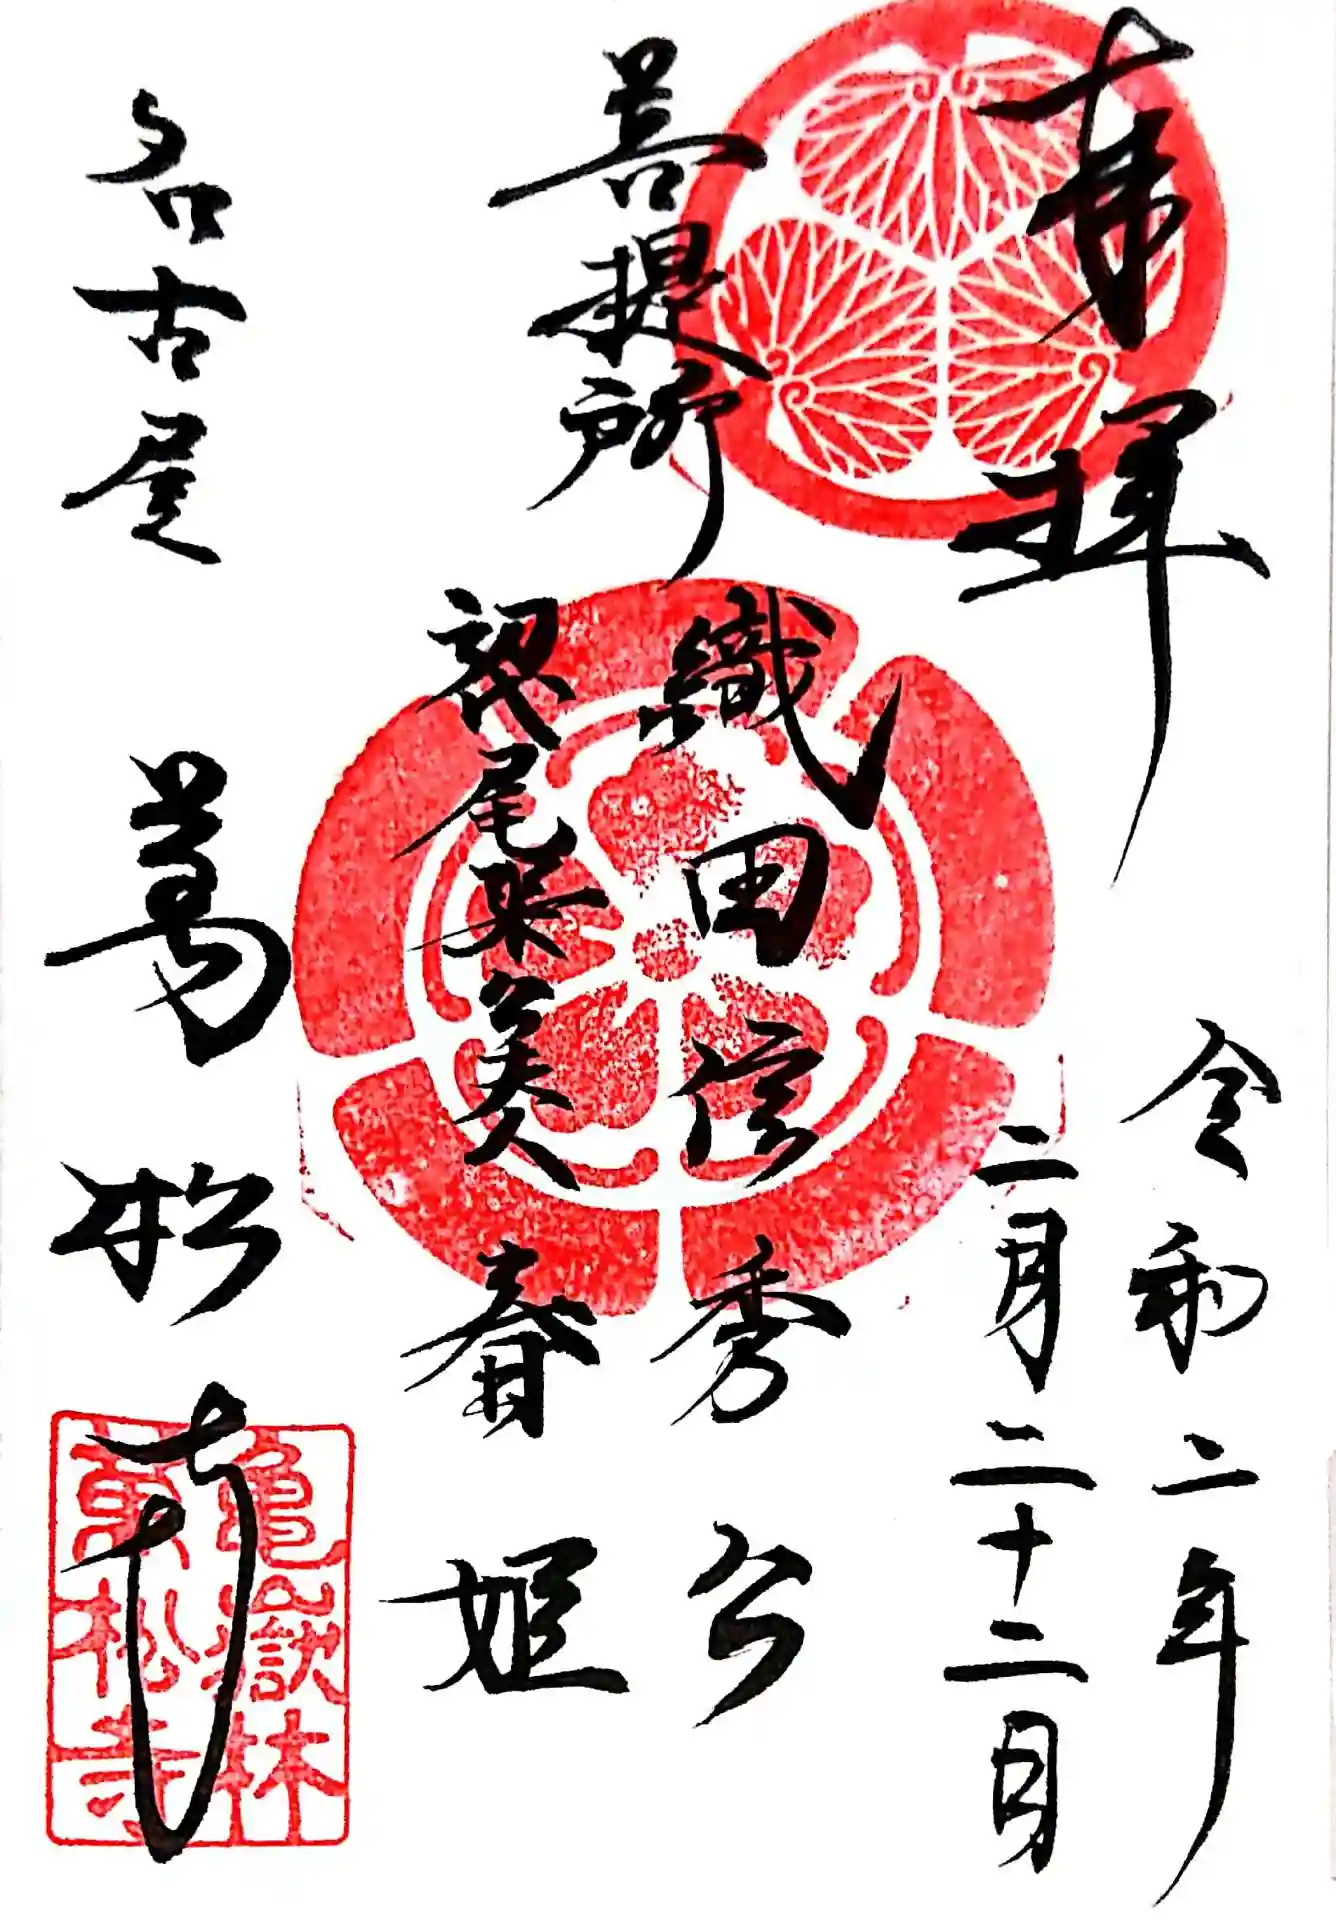 奉拝
令和二年
二月二十二日
菩提所
織田信秀公
初代尾張公夫人
春姫
名古屋
萬松寺
亀嶽林
萬松寺